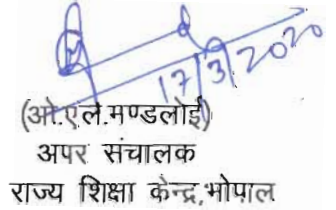 17/3/2020
(ओ.एल.मण्डलोई)
अपर संचालक
राज्य शिक्षा केन्द्र,भोपाल